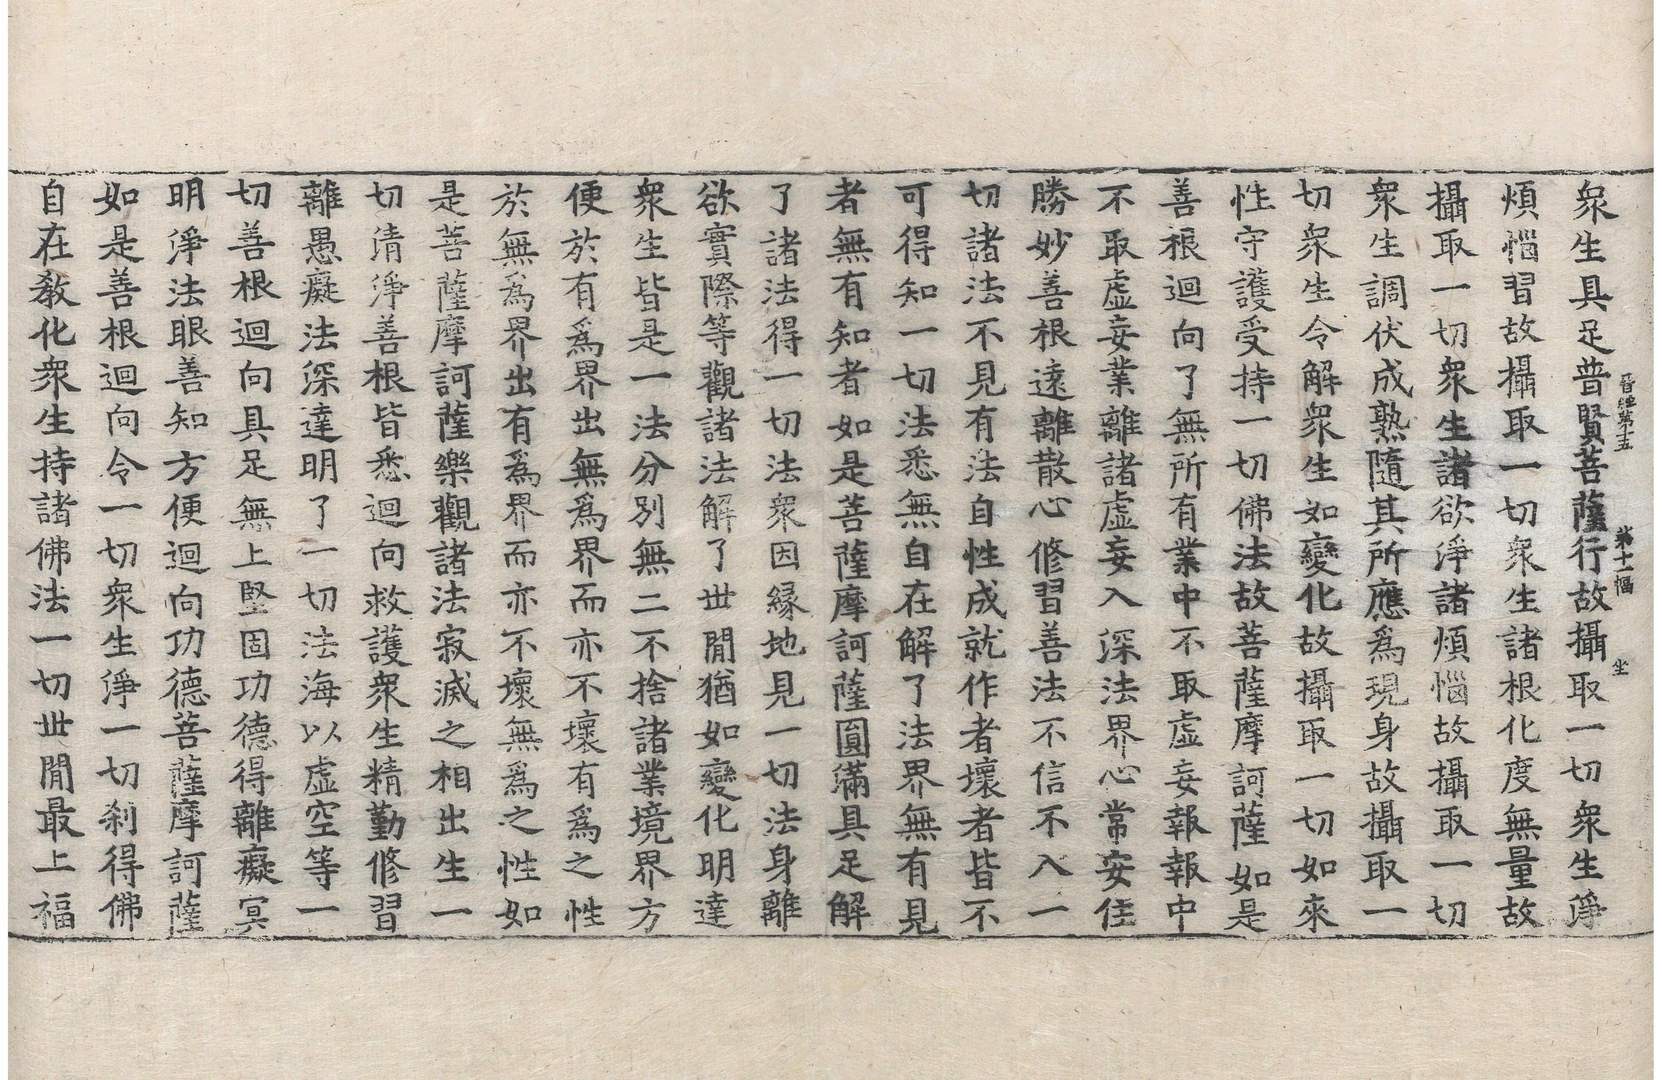 晉經第十五 第十一幅 坐
衆生具足普賢菩薩行故攝取一切衆生淨
煩惱習故攝取一切衆生諸根化度無量故
攝取一切衆生諸欲淨諸煩惱故攝取一切
衆生調伏成熟隨其所應爲現身故攝取一
切衆生令解衆生如變化故攝取一切如來
性守護受持一切佛法故菩薩摩訶薩如是
善根迴向了無所有業中不取虛妄報報中
不取虛妄業離諸虛妄入深法界心常安住
勝妙善根遠離散心修習善法不信不入一
切諸法不見有法自性成就作者壞者皆不
可得知一切法悉無自在解了法界無有見
者無有知者如是菩薩摩訶薩圓滿具足解
了諸法得一切法衆因緣地見一切法身離
欲實際等觀諸法解了丗閒猶如變化明達
衆生皆是一法分別無二不捨諸業境界方
便於有爲界出無爲界而亦不壞有爲之性
於無爲界出有爲界而亦不壞無爲之性如
是菩薩摩訶薩樂觀諸法寂滅之相出生一
切清淨善根皆悉迴向救護衆生精勤修習
離愚癡法深達明了一切法海以虛空等一
切善根迴向具足無上堅固功德得離癡冥
明淨法眼善知方便迴向功德菩薩摩訶薩
如是善根迴向令一切衆生淨一切刹得佛
自在教化衆生持諸佛法一切丗閒最上福